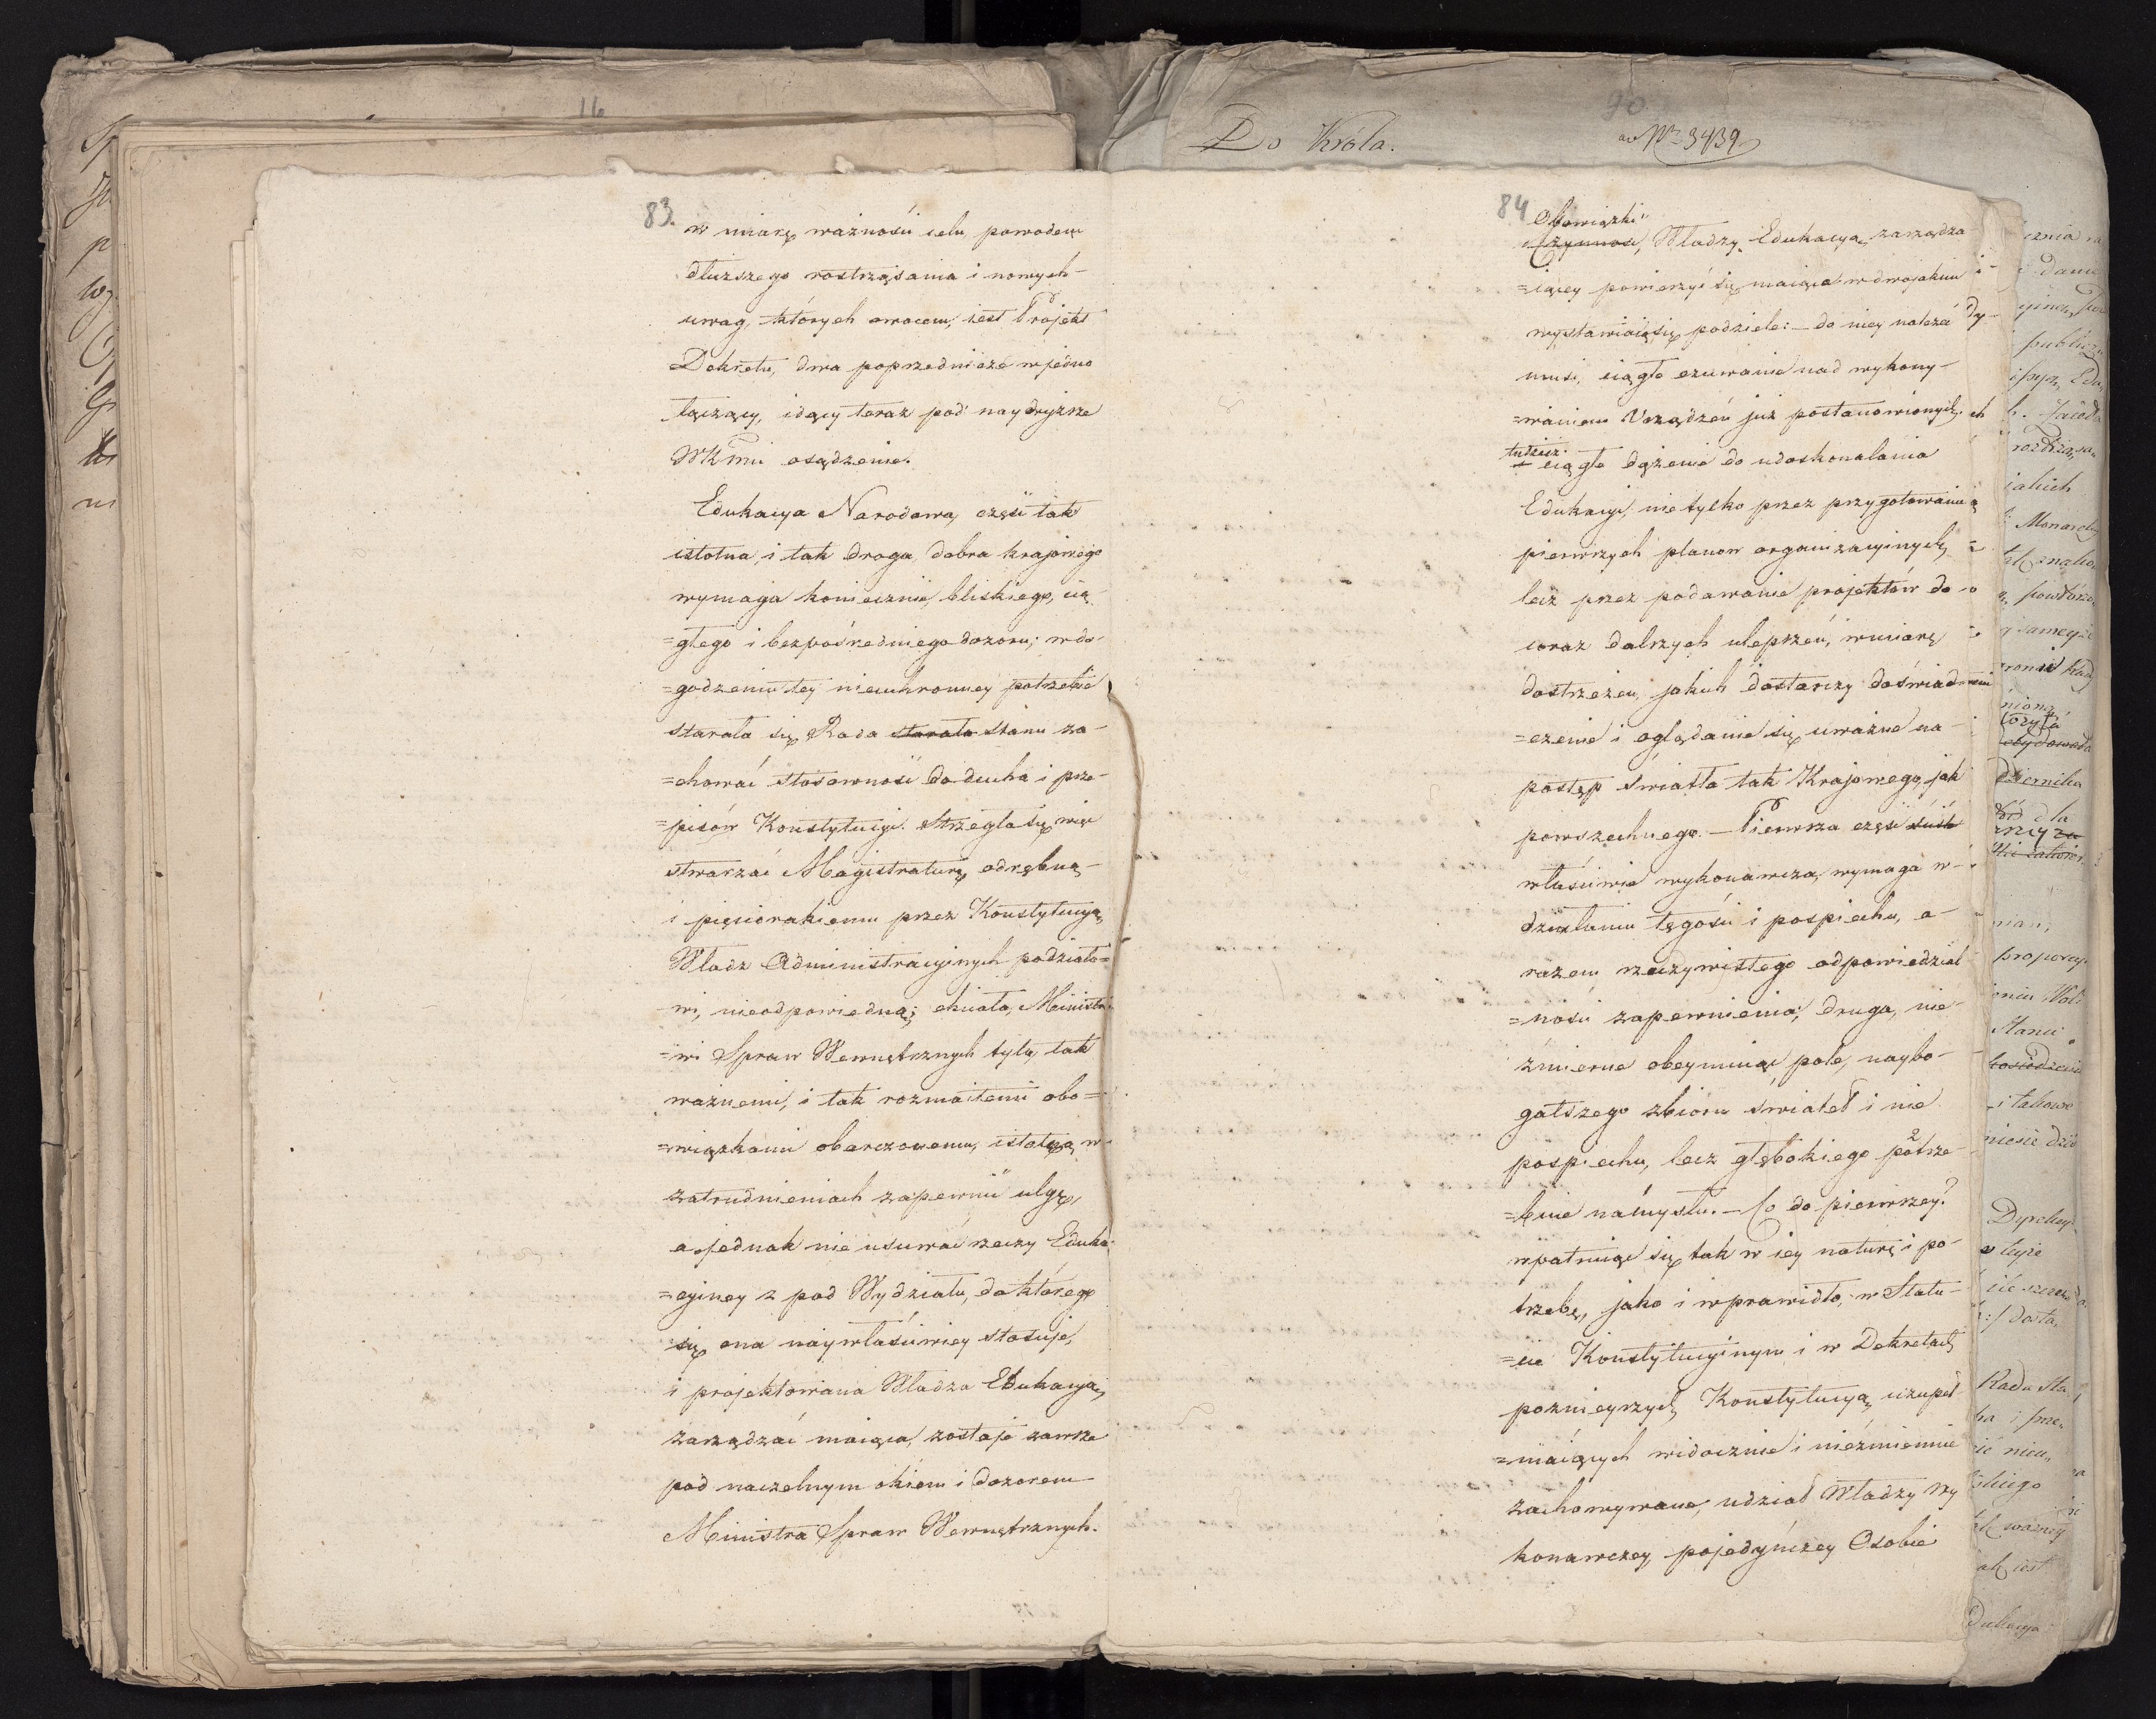 16
90
Do Króla.
ad Nr 3439
83.
w miarę ważności celu powodem
dłuższego rostrząsania i nowych
uwag, których owocem, iest Projekt
Dekretu, dwa poprzednicze w jedno
łączący, idący teraz pod naydryższe
WKMci osądzenie.
Edukacya Narodowa, część tak
istotna, i tak droga, dobra krajowego
wymaga koniecznie, bliskiego, cią-
=głego i bezpośredniego dozoru; w do-
=godzeniu tey nieuchronney potrzebie
starała się Rada starała Stanu za-
=chować stosowność do ducha i prze-
=pisów Konstytucyi. Strzegła się więc
stwarzać Magistraturę, odrębną
i pięciorakiemu przez Konstytucyą,
Władz Administracyinych podziało=
wi, nieodpowiednią; chciała, Ministro
=wi Spraw Wewnętrznych tylą, tak
ważnemi, i tak rozmaitemi obo=
=wiązkami obarczonemu, istotną w
zatrudnieniach zapewnić ulgę,
a jednak nie usuwać rzeczy Eduka
=cyiney z pod Wydziału, do którego
się ona naywłaściwiey stosuje,
i projektowana Władza Edukacyą,
zarządzać maiąca, zostaje zawsze
pod naczelnym okiem i dozorem
Ministra Spraw Wewnętrznych.
84
Obowiązki
Czynność, Władzy, Edukacyą, zarządza
=iącey powierzyć się maiące w dwojakim
wystawiaią się, podziele: – do niey należeć
musi, ciągłe czuwanie nad wykony-
=waniem Urządzeń już postanowionych,
tudzież
i ciągłe dążenie do udoskonalania
Edukacyi, nie tylko przez przygotowanie
pierwszych planow organizacyinych,
lecz przez podawanie projektów do
coraz dalszych ulepszeń, w miarę
dostrzeżeń, jakich dostarczy doświad-
=czenie i oglądanie się uważne na
postęp światła tak Krajowego, jak
powszechnego. – Pierwsza część ściśle
właściwie wykonawcza, wymaga w
działaniu tęgości i pospiechu, a
razem rzeczywistego odpowiedzial
=ności zapewnienia; druga, nie-
zmierne obeymuiąc pole, naybo-
gatszego zbioru świateł i nie
pospiechu, lecz głębokiego potrze-
2
=buie namysłu. – Co do pierwszey?
wpatruiąc się tak w iey naturę i po-
trzebę, jako i w prawidło, w Statu-
=cie Konstytucyinym i w Dekretach
poznieyszych, Konstytucyą, uzupeł-
=niaiących widocznie i niezmiennie
zachowywane, udział Władzy Wy
konawczey, pojedyńczey Osobie